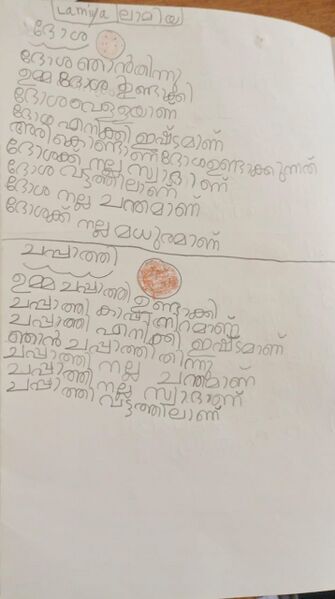 Lamiya ലാമിയ
ദോശ
ദോശ ഞാൻ തിന്നു
ഉമ്മ ദോശ ഉണ്ടാക്കി
ദോശ വെളളയാണ
ദോശ എനിക്കി ഇഷ്ടമാണ്
അരികൊണ്ടാണ് ദോശ ഉണ്ടാക്കുന്നത്
ദോശക്ക നല്ല സ്വാദാണ്
ദോശ വട്ടത്തിലാണ്
ദോശ നല്ല ചന്തമാണ്
ദോശക്ക് നല്ല മധുരമാണ്
ചപ്പാത്തി
ഉമ്മ ചപ്പാത്തി ഉണ്ടാക്കി
ചപ്പാത്തി കാപ്പിനിറമാണ്
ചപ്പാത്തി എനിക്കി ഇഷ്ടമാണ്
ഞാൻ ചപ്പാത്തി തിന്നു
ചപ്പാത്തി നല്ല ചന്തമാണ്
ചപ്പാത്തി നല്ല സ്വാദാണ്
ചപ്പാത്തി വട്ടത്തിലാണ്